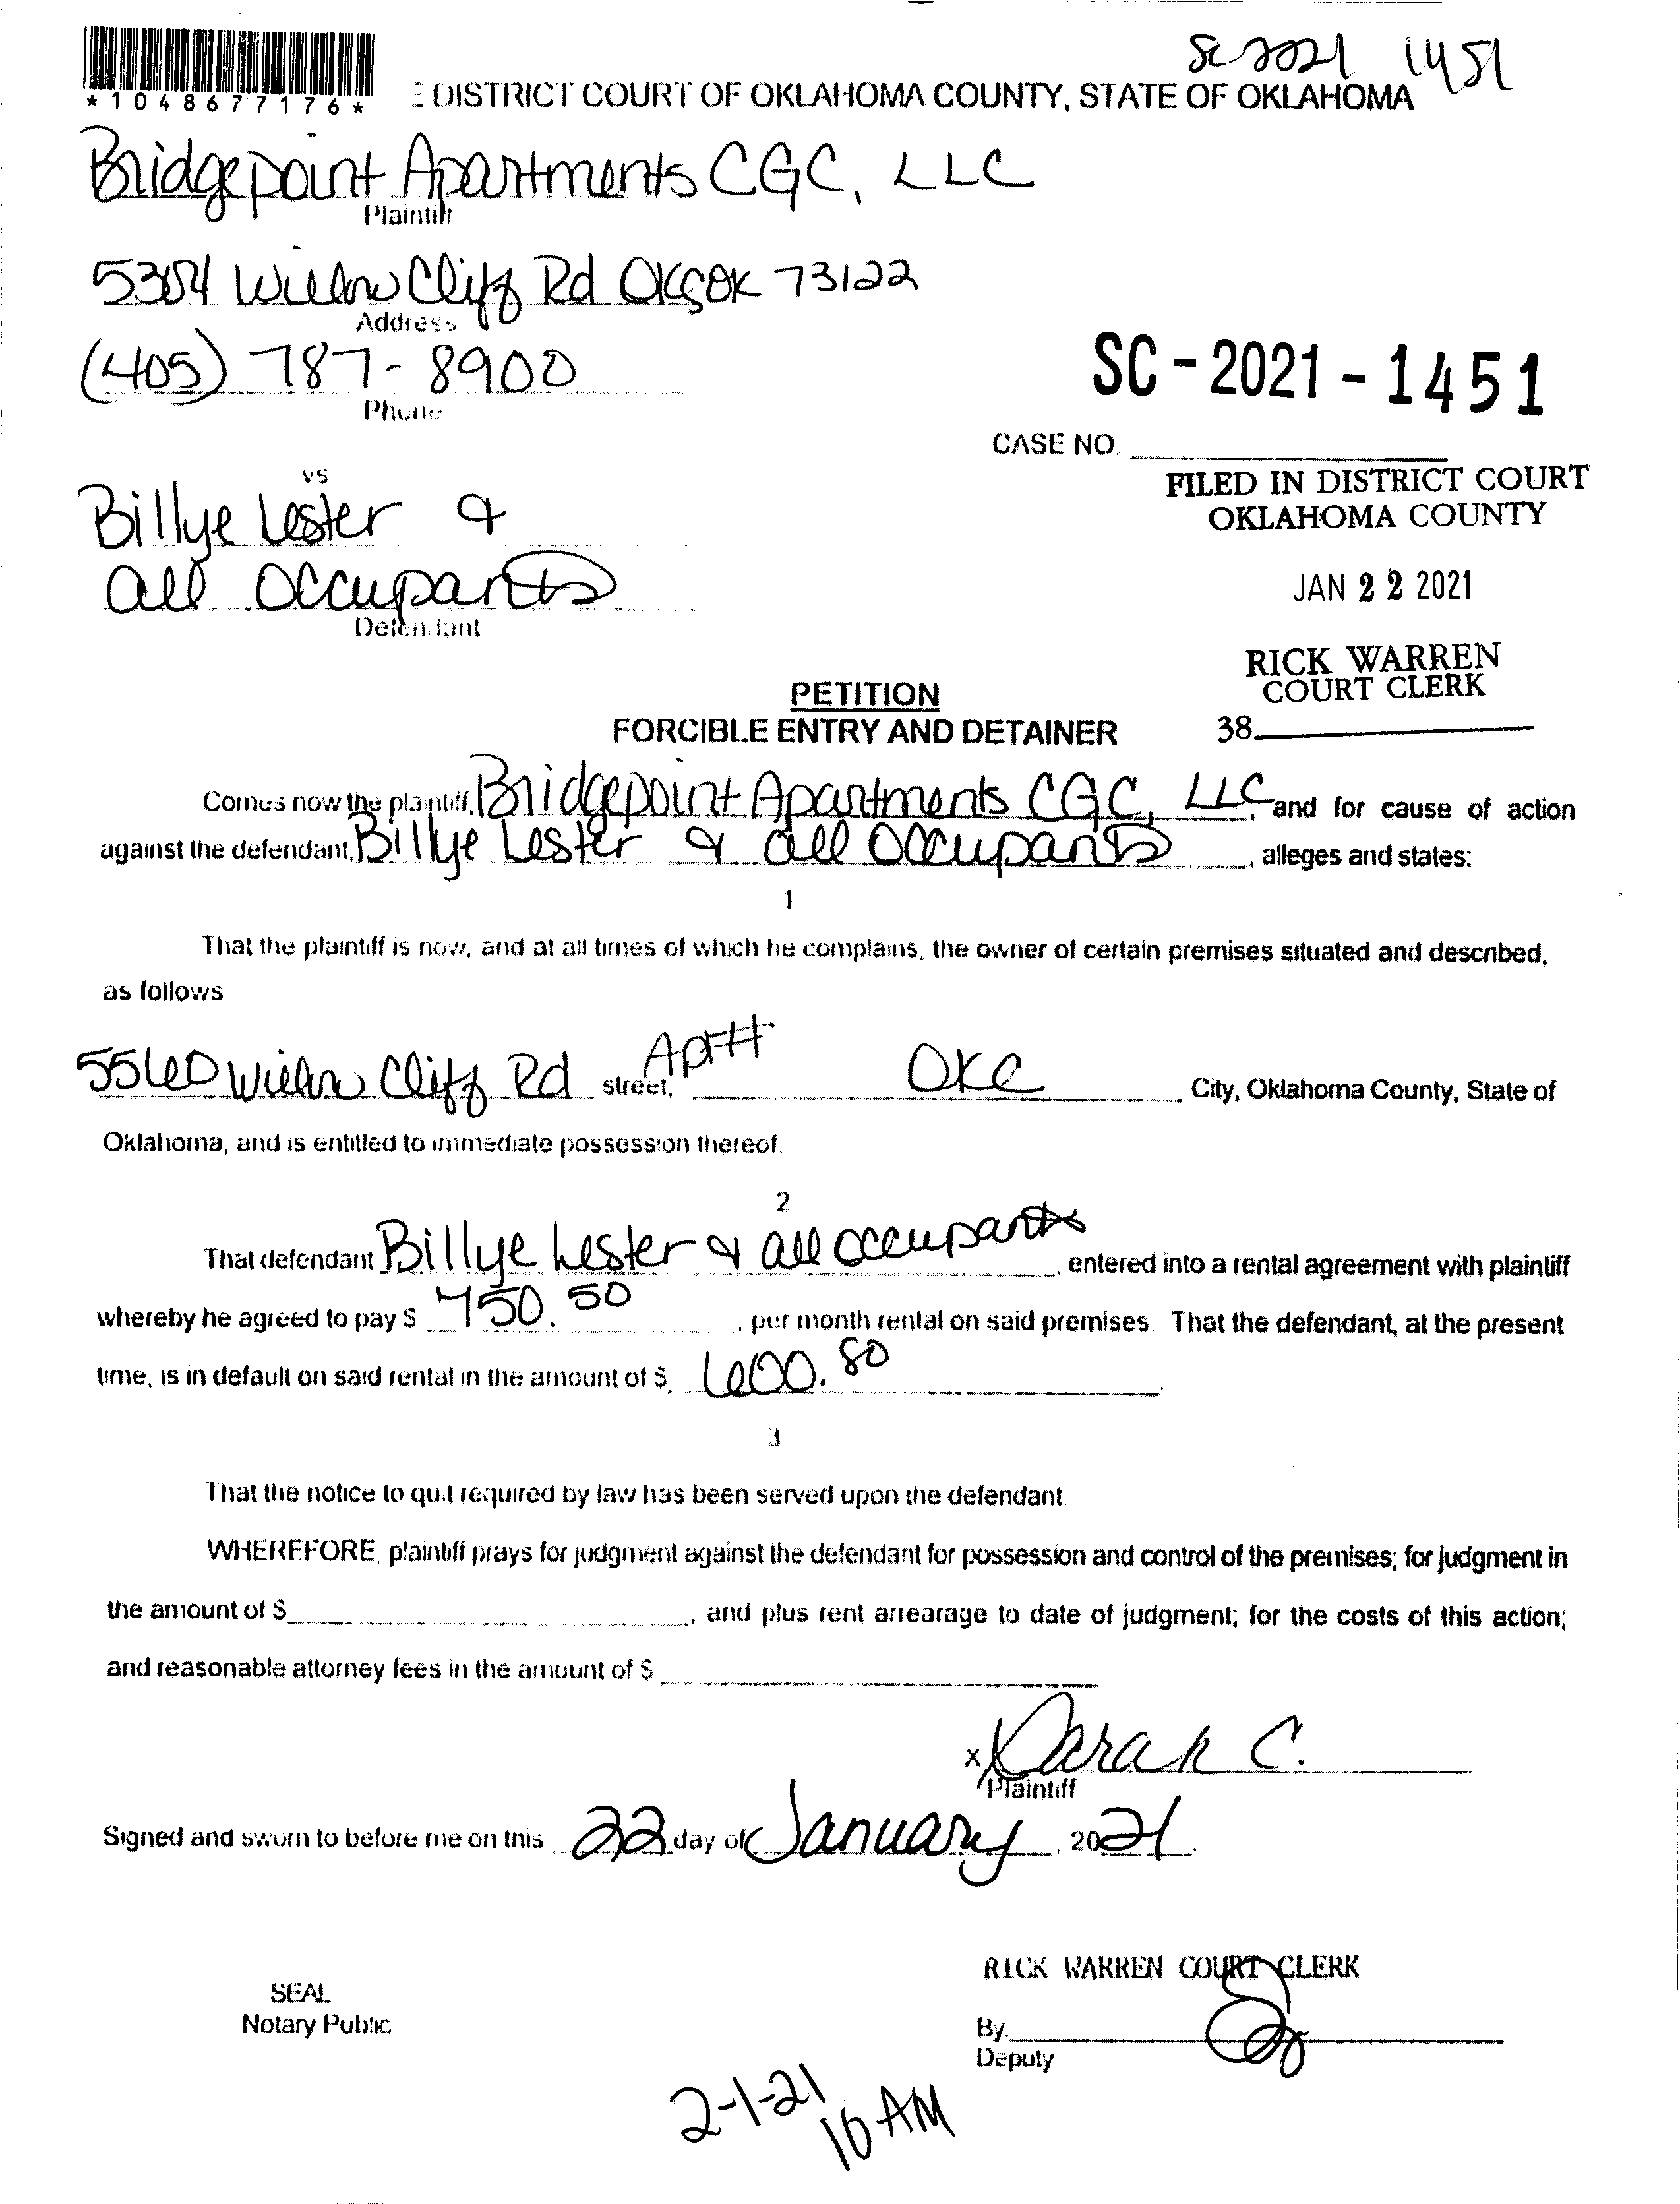 SC 2021 1451
*1048677176*
E DISTRICT COURT OF OKLAHOMA COUNTY, STATE OF OKLAHOMA
Bridgepoint Apartments CGC, LLC
Plaintiff
Willow Cliff Rd OKC OK 73122
Address
(405) 787-8900
Phone
SC-2021-1451
CASE NO.
vs
FILED IN DISTRICT COURT
OKLAHOMA COUNTY
Billye Lester &
all Occupants
Defendant
JAN 22 2021
RICK WARREN
COURT CLERK
38
PETITION
FORCIBLE ENTRY AND DETAINER
Comes now the plaintiff, Bridgepoint Apartments CGC, LLC, and for cause of action
against the defendant, Billye Lester & all Occupants, alleges and states:
1
That the plaintiff is now, and at all times of which he complains, the owner of certain premises situated and described,
as follows
5560 Willow Cliff Rd street, Apt# OKC City, Oklahoma County, State of
Oklahoma, and is entitled to immediate possession thereof.
2
That defendant Billye Lester & all occupants, entered into a rental agreement with plaintiff
whereby he agreed to pay $ 750.50, per month rental on said premises. That the defendant, at the present
time, is in default on said rental in the amount of $ 600.80
3
That the notice to quit required by law has been served upon the defendant.
WHEREFORE, plaintiff prays for judgment against the defendant for possession and control of the premises; for judgment in
the amount of $ ; and plus rent arrearage to date of judgment; for the costs of this action;
and reasonable attorney fees in the amount of $
x Sarah C.
Plaintiff
Signed and sworn to before me on this 22 day of January, 2021.
RICK WARREN COURT CLERK
SEAL
Notary Public
By.
Deputy
2-1-21
10 AM